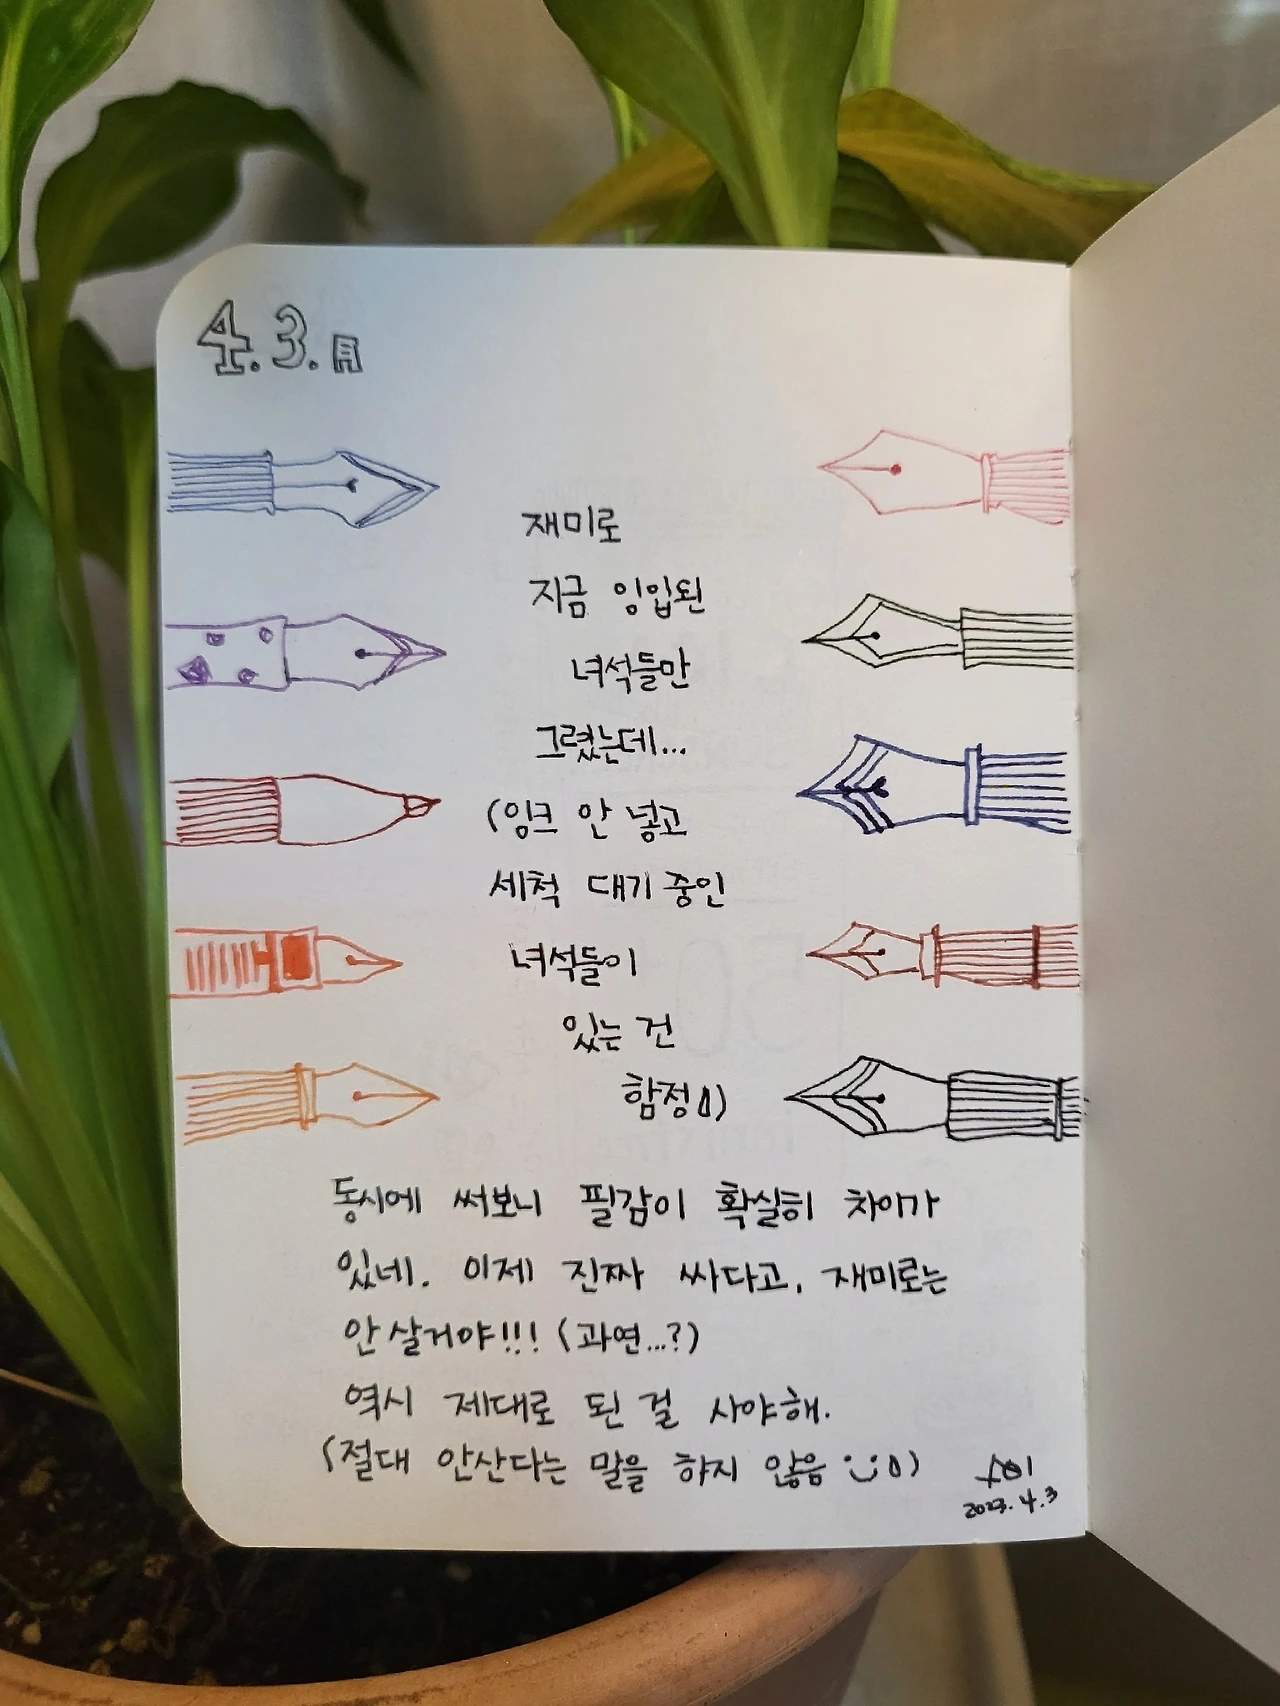 4.3.月
재미로
지금 잉입된
녀석들만
그렸는데...
(잉크 안 넣고
세척 대기 중인
녀석들이
있는 건
함정ㅇ)
동시에 써보니 필감이 확실히 차이가
있네. 이제 진짜 싸다고, 재미로는
안 살거야!!! (과연...?)
역시 제대로 된 걸 사야해.
(절대 안산다는 말을 하지 않음
2023.4.3